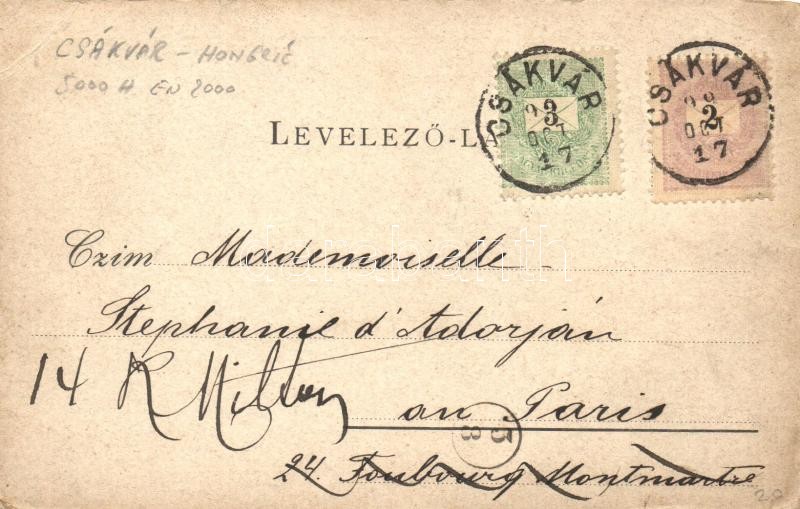 CSÁKVÁR - HONGRIE
5000 H EN 2000
LEVELEZŐ-LA
3
CSÁKVÁR
98
OCT
17
2
CSÁKVÁR
98
OCT
17
Czim Mademoiselle
Stephanie d'Adorján
14 R Milton an Paris
24. Foubourg Montmartre